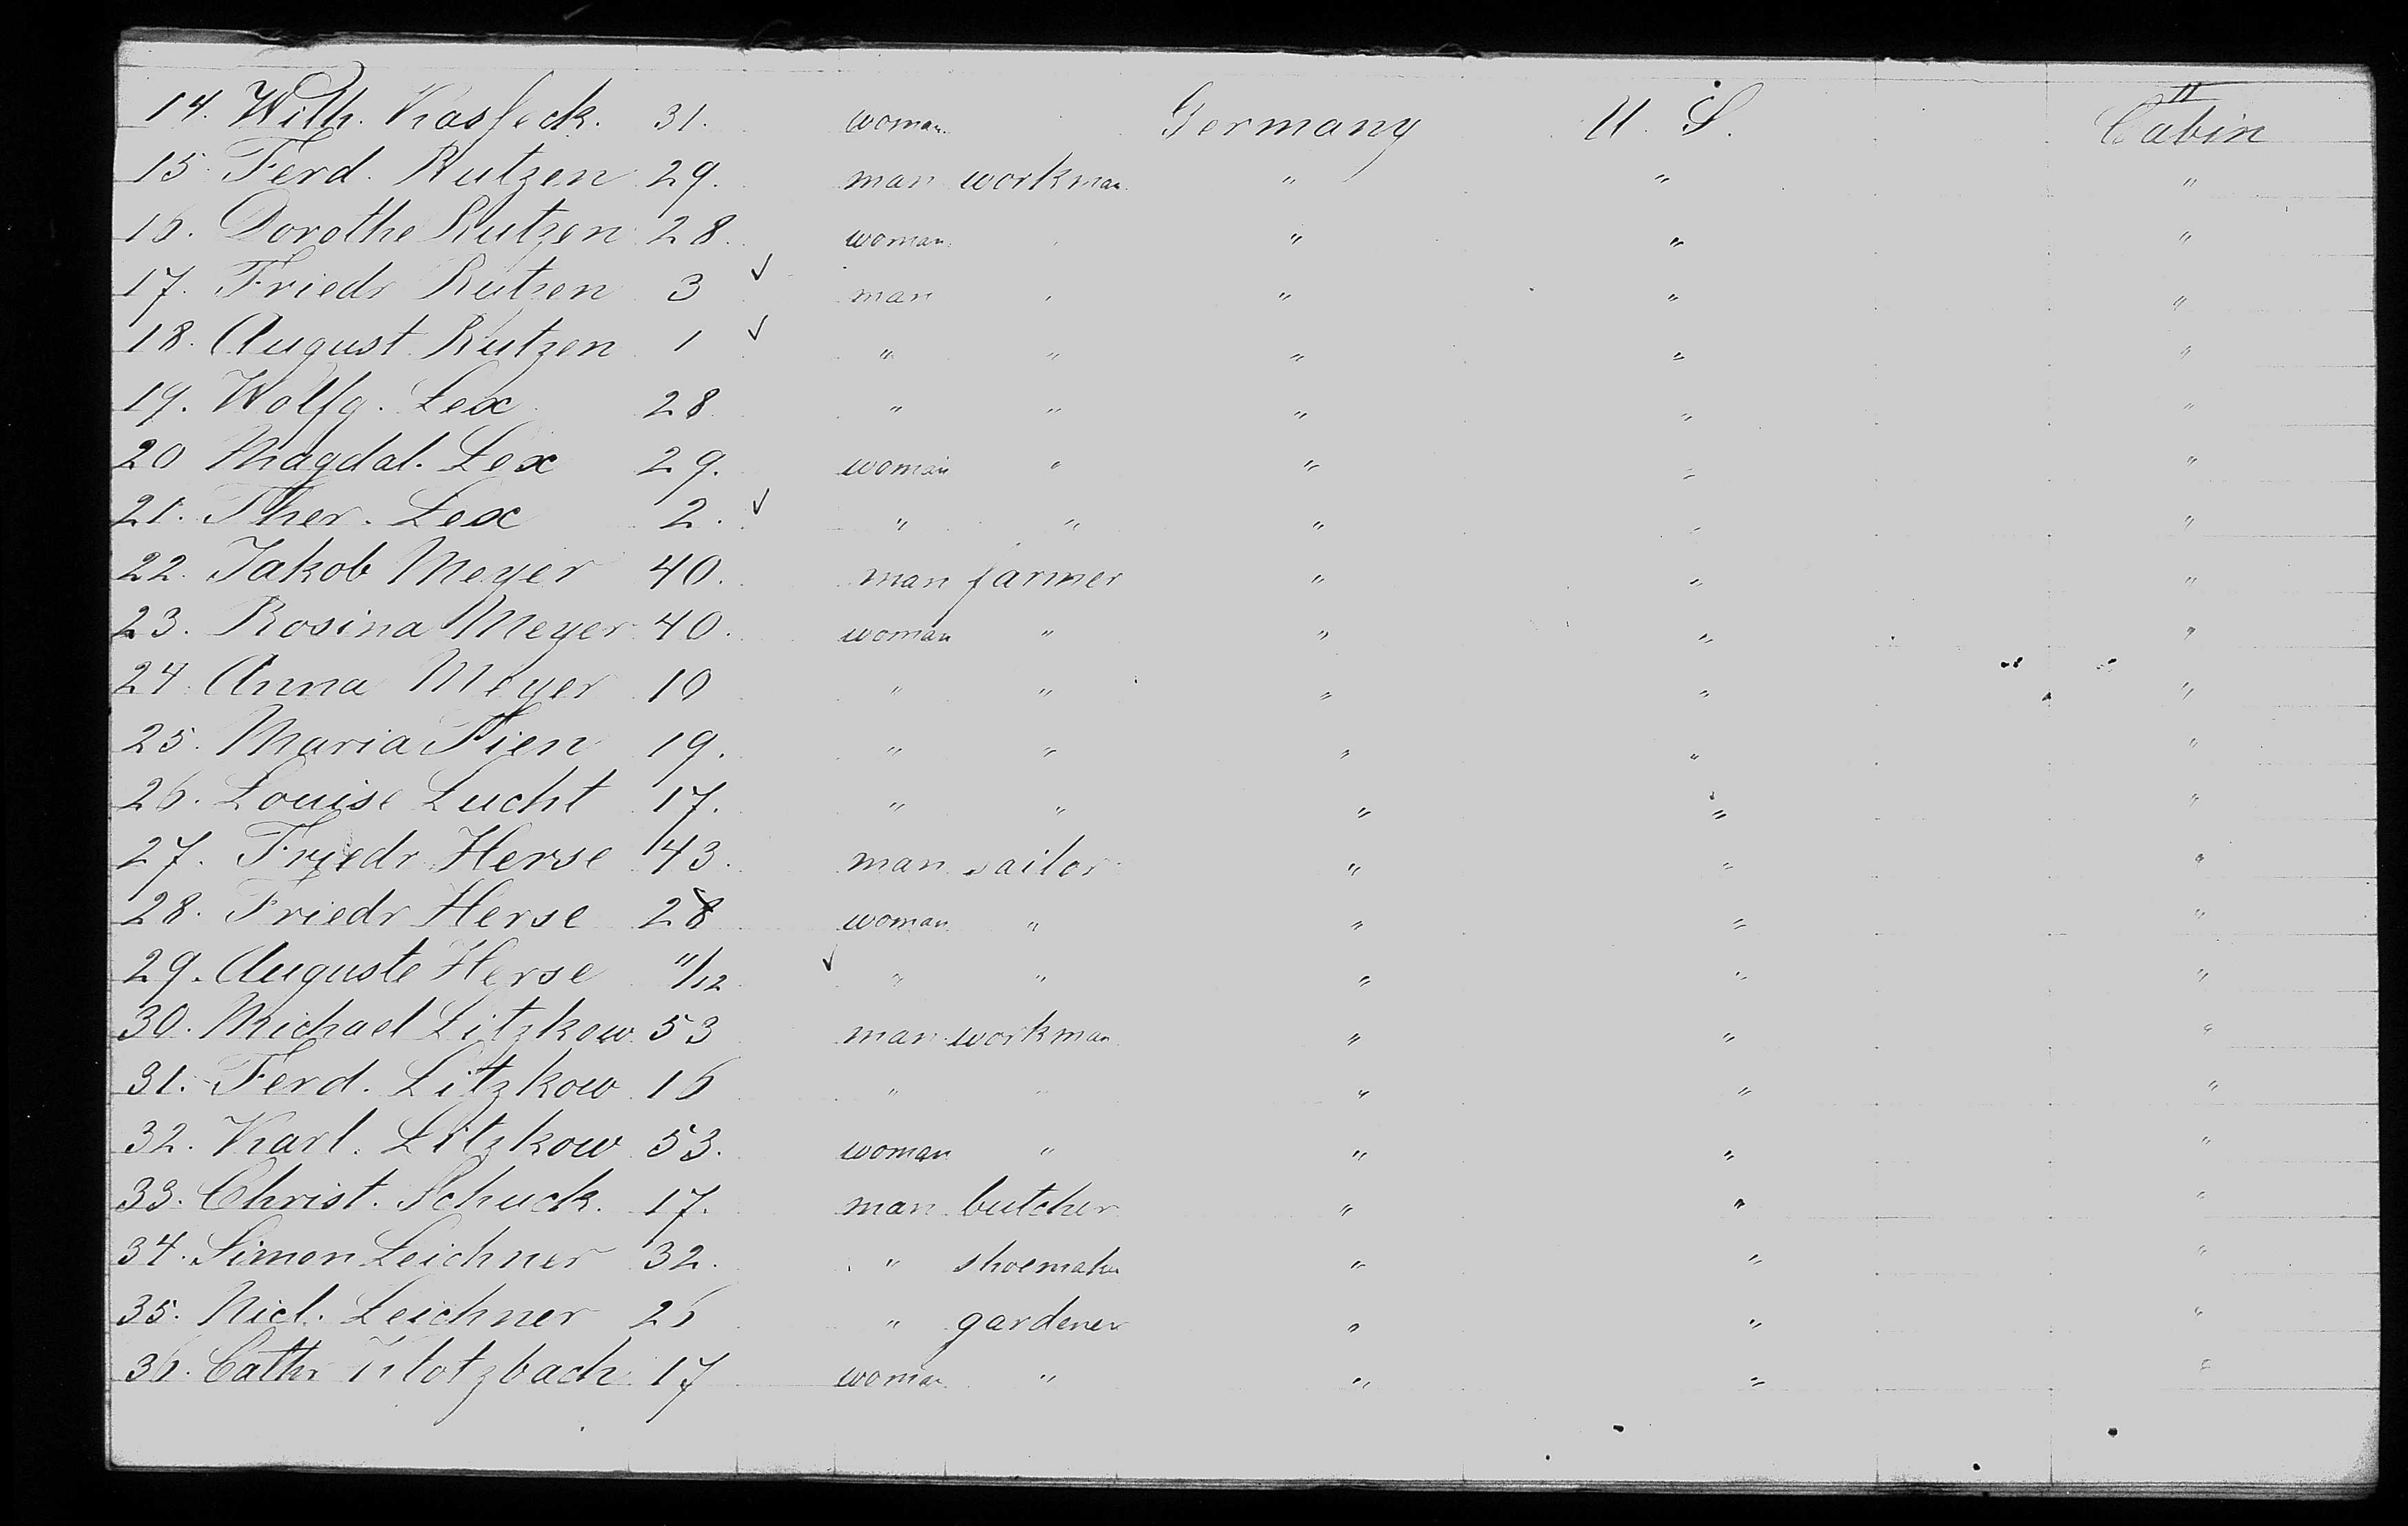 14. Wilh. Kasfeck. 31. woman. Germany U. S. II Cabin
15. Ferd. Rutzen 29. man workman " " "
16. Dorothe Rutzen 28. woman " " "
17. Friedr Rutzen 3 ✓ man " " "
18. August Rutzen 1 ✓ " " " " "
19. Wolfg. Lex 28 " " " " "
20 Magdal. Lex 29. woman " " " "
21. Ther. Lex 2. ✓ " " " " "
22. Jakob Meyer 40. man farmer " " "
23. Rosina Meyer 40. woman " " " "
24. Anna Meyer 10 " " " " "
25. Maria Fien 19. " " " " "
26. Louise Lucht 17. " " " " "
27. Friedr Herse 43. man sailor " " "
28. Friedr Herse 28 woman " " " "
29. Auguste Herse 11/12 ✓ " " " " "
30. Michael Litzkow 53 man workman " " "
31. Ferd. Litzkow 16 " " " " "
32. Karl. Litzkow 53. woman " " " "
33. Christ. Schuck. 17. man butcher " " "
34. Simon Leichner 32. " shoemaker " " "
35. Nicl. Leichner 26 " gardener " " "
36. Cathr Klotzbach 17 woman " " " "